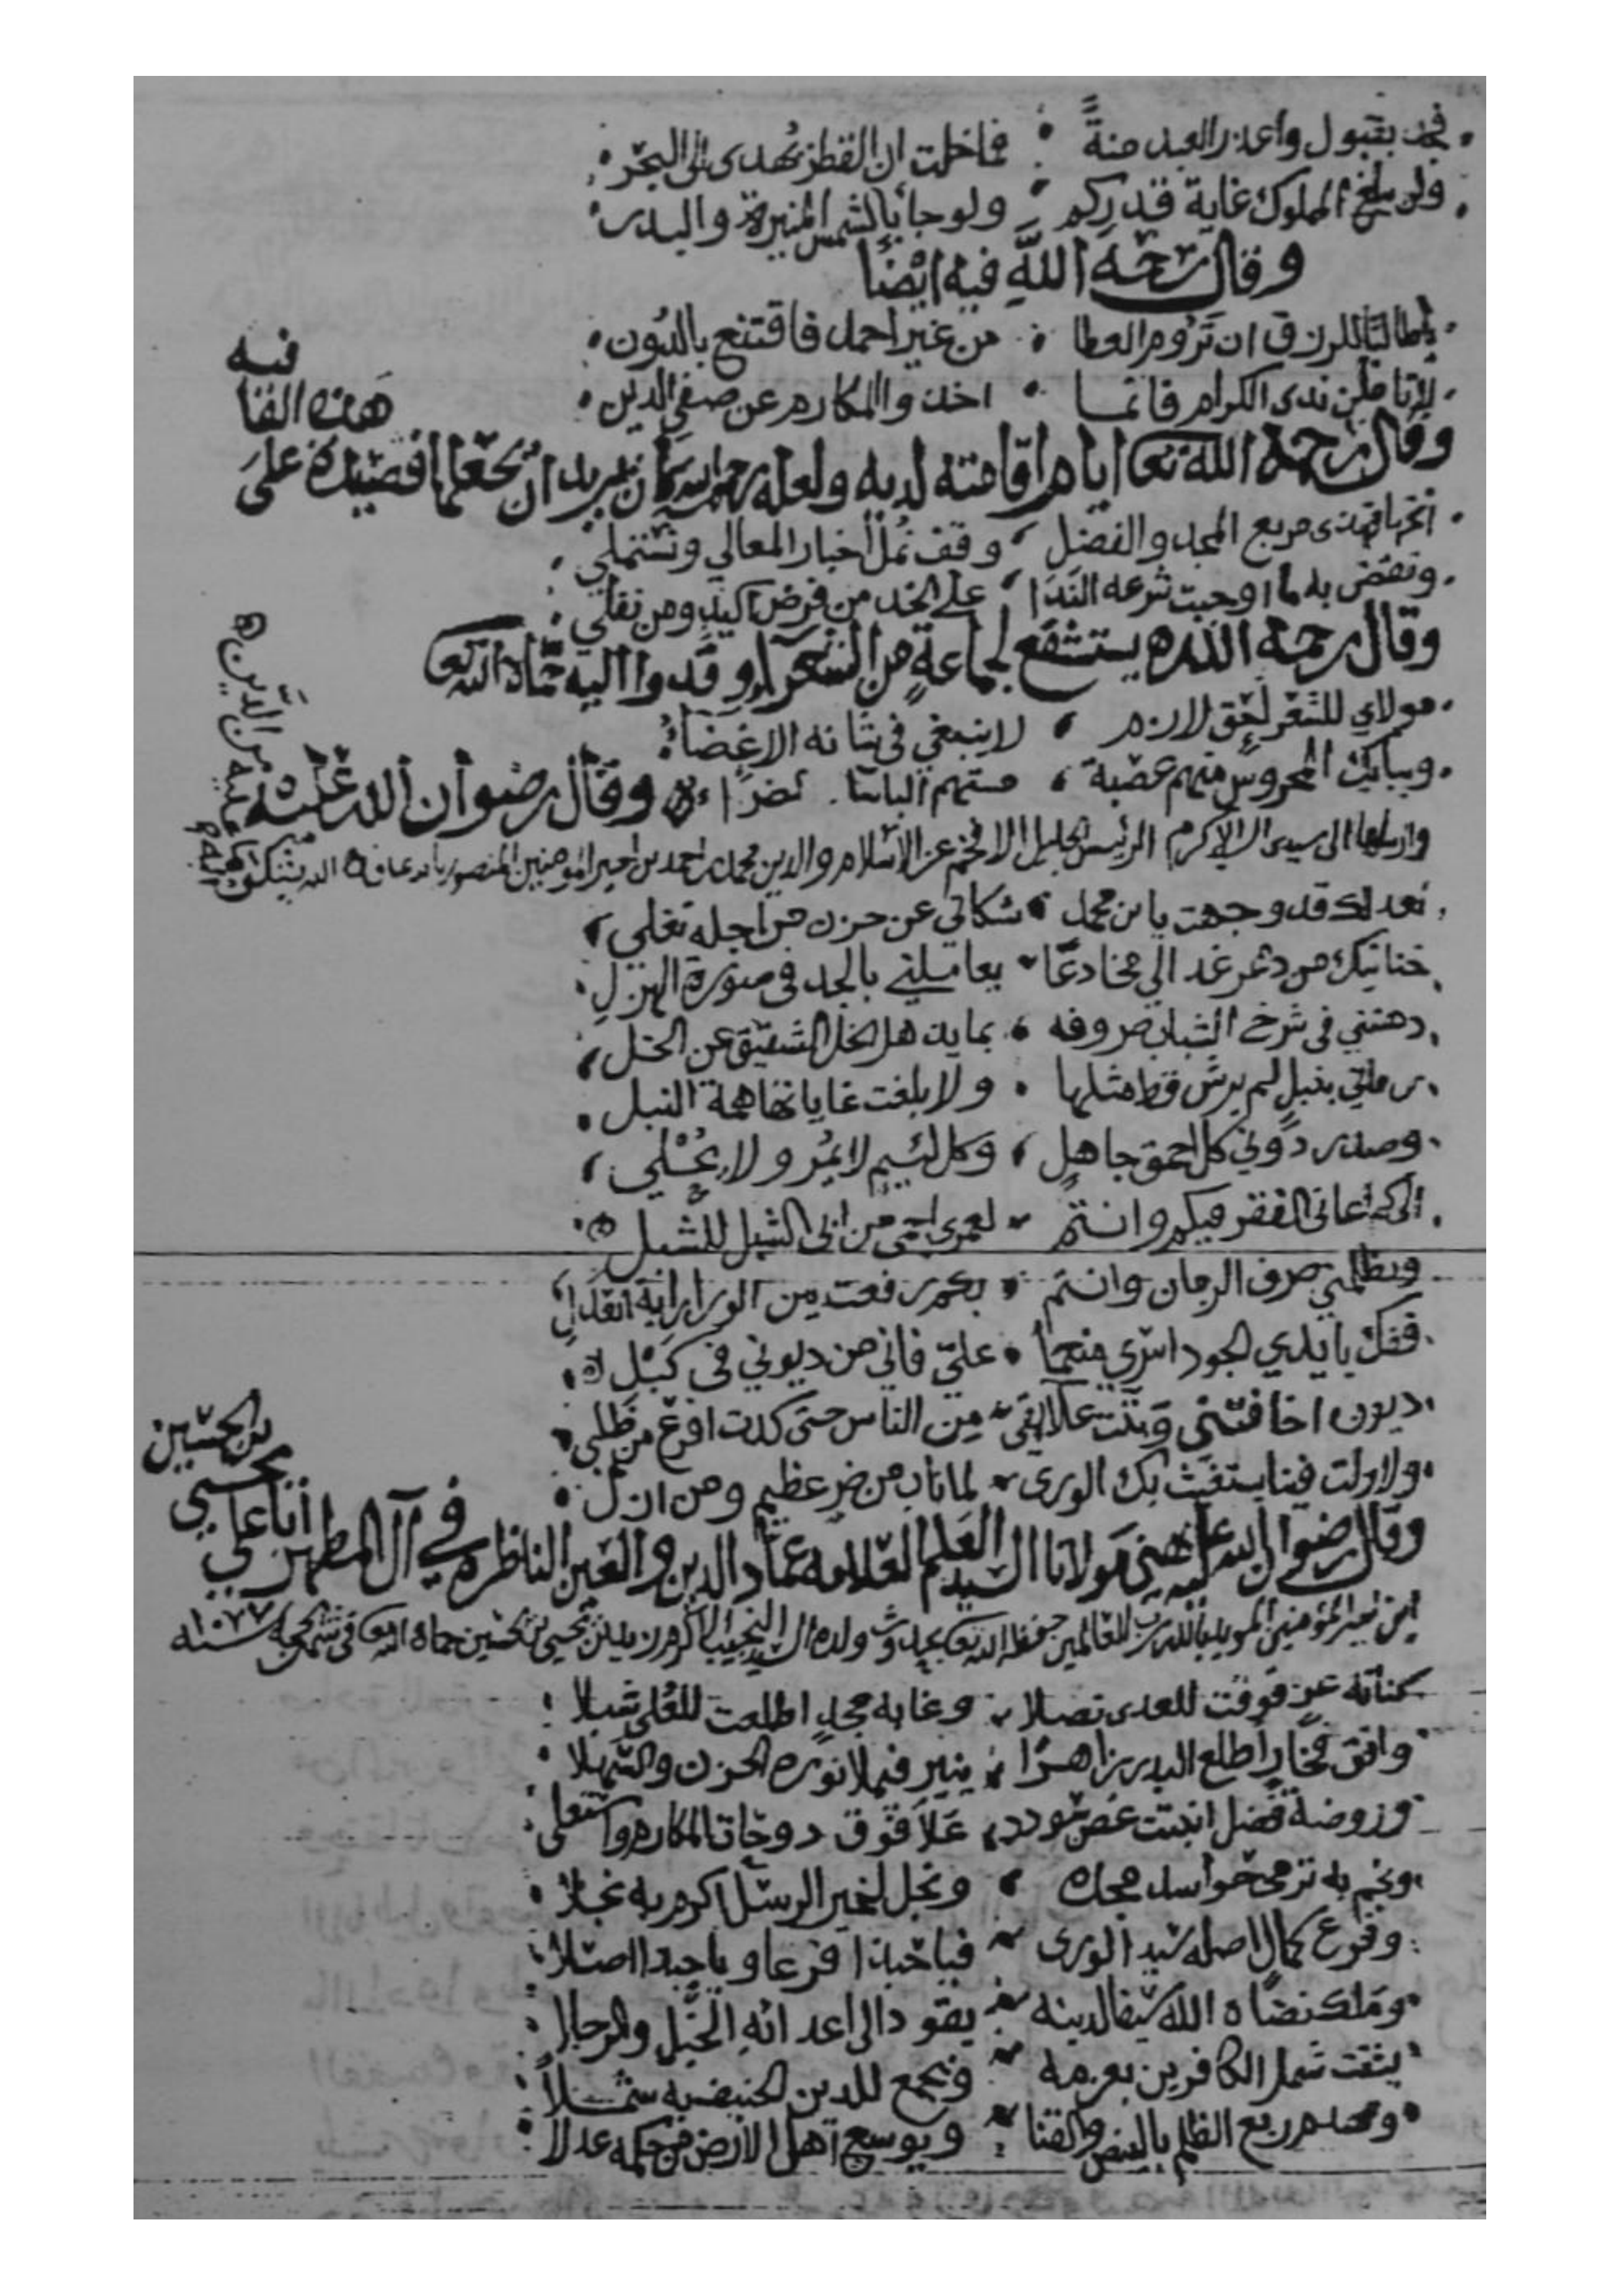 فجد بقبول واعذر العبد منةً فما خلت ان القطر يُهدى الى البحر
ولن يبلغ المملوك غاية قدركم ولو جا بالشمس المنيرة والبدر
وقال رحمه اللهِ فيه ايْضًا
يا طالبًا للرزق ان تَرُوم العطا من غير احمد فاقتنع بالدُون
لا تاملن ندى الكرام فانما اخذوا المكارم عن صفي الدين
وقال رحمه الله تعا ايام اقامته لديه ولعله رحمه الله كان يريد ان يجعلها قصيدة على
هذه القا
فيه
مربع المجد والفضل وقف نمل اخبار المعالي ونستملي
ونقضي به ما اوجبت شرعه الندا على الخد من فرض اكيدٍ ومن نفلي
وقال رحمه الله يستشفع لجماعةٍ من الشعرآء وفدوا اليه حماه الله تعا
مولاي للشعر لحق لازم لا ينبغي في شانه الاغضاء
وببابك المحروس منهم عصبة مستهم الباسا ضراء
وقال رضوان الله عليه
وارسلها الى سيدي الاكرم الرئيس الجليل الافخم عز الاسلام والدين محمد بن احمد بن امير المؤمنين المنصور بالله عافاه الله يشتكي
من الدين
لك قد وجهت يا بن محمد شكاتي عن حزن من اجله تغلي
حنانيك من دهر غدا لي مخادعًا يعاملني بالجد في صورة الهزلِ
دهتني في شرخ الشباب صروفه بما يذهل الخل الشفيق عن الخل
رماني بنبلٍ لم يرش قط مثلها ولا بلغت غاياتها همة النبل
وصدر دوني كل احمق جاهل وكل لئيم لا يمُر ولا يُحْلي
الى كم اعاني الفقر فيكم وانتم لعمري من ابي الشبل للشبل
ويظلمني صرف الزمان وانتم بكم رفعت بين الورا راية العدل
ففك بايدي الجود اسري منعمًا عليّ فاني من ديوني في كَبْل
ديون اخافتني من الناس حتى كدت افزع من ظلي
ولا زلت فينا يستغيث بك الورى لما ناب من ضر عظيم ومن ازل
وقال رضوان الله عليه يهني مولانا السيد العلم العلامه عماد الدين والعين الناظره في آل المطهر بن علي
يحيى بن الحسين
ابن امير المؤمنين المويد بالله رب العالمين حفظه الله تعا بحدوث ولده السيد النجيب الاكرم زيد بن يحيى بن الحسين حماه الله تعا في شهر الحجه سنه ١٠٧٧
كنانة عزٍ فوقت للعدى نصلا وغابة مجدٍ اطلعت للعُلى شبلا
وافق فخارٍ اطلع البدر زاهرًا ينير فيملا نوره الحزن والسهلا
وروضة فضل انبتت غصن سودد علا فوق دوحات المكارم واستعلى
ونجم به ترمى حواسد مجده ونجل لخير الرسل اكرم به نجلا
وفرع كمال اصله سيد الورى فيا حبذا فرعا ويا حبذا اصلا
وملك نضاه الله سيفا لدينه يقود الى اعدائهِ الخيل والرجلا
يشتت شمل الكافرين بعزمه ويجمع للدين الحنيفيه شملاً
ويهدم ربع الظلم بالبيض والقنا ويوسع اهل الارض من حكمه عدلا